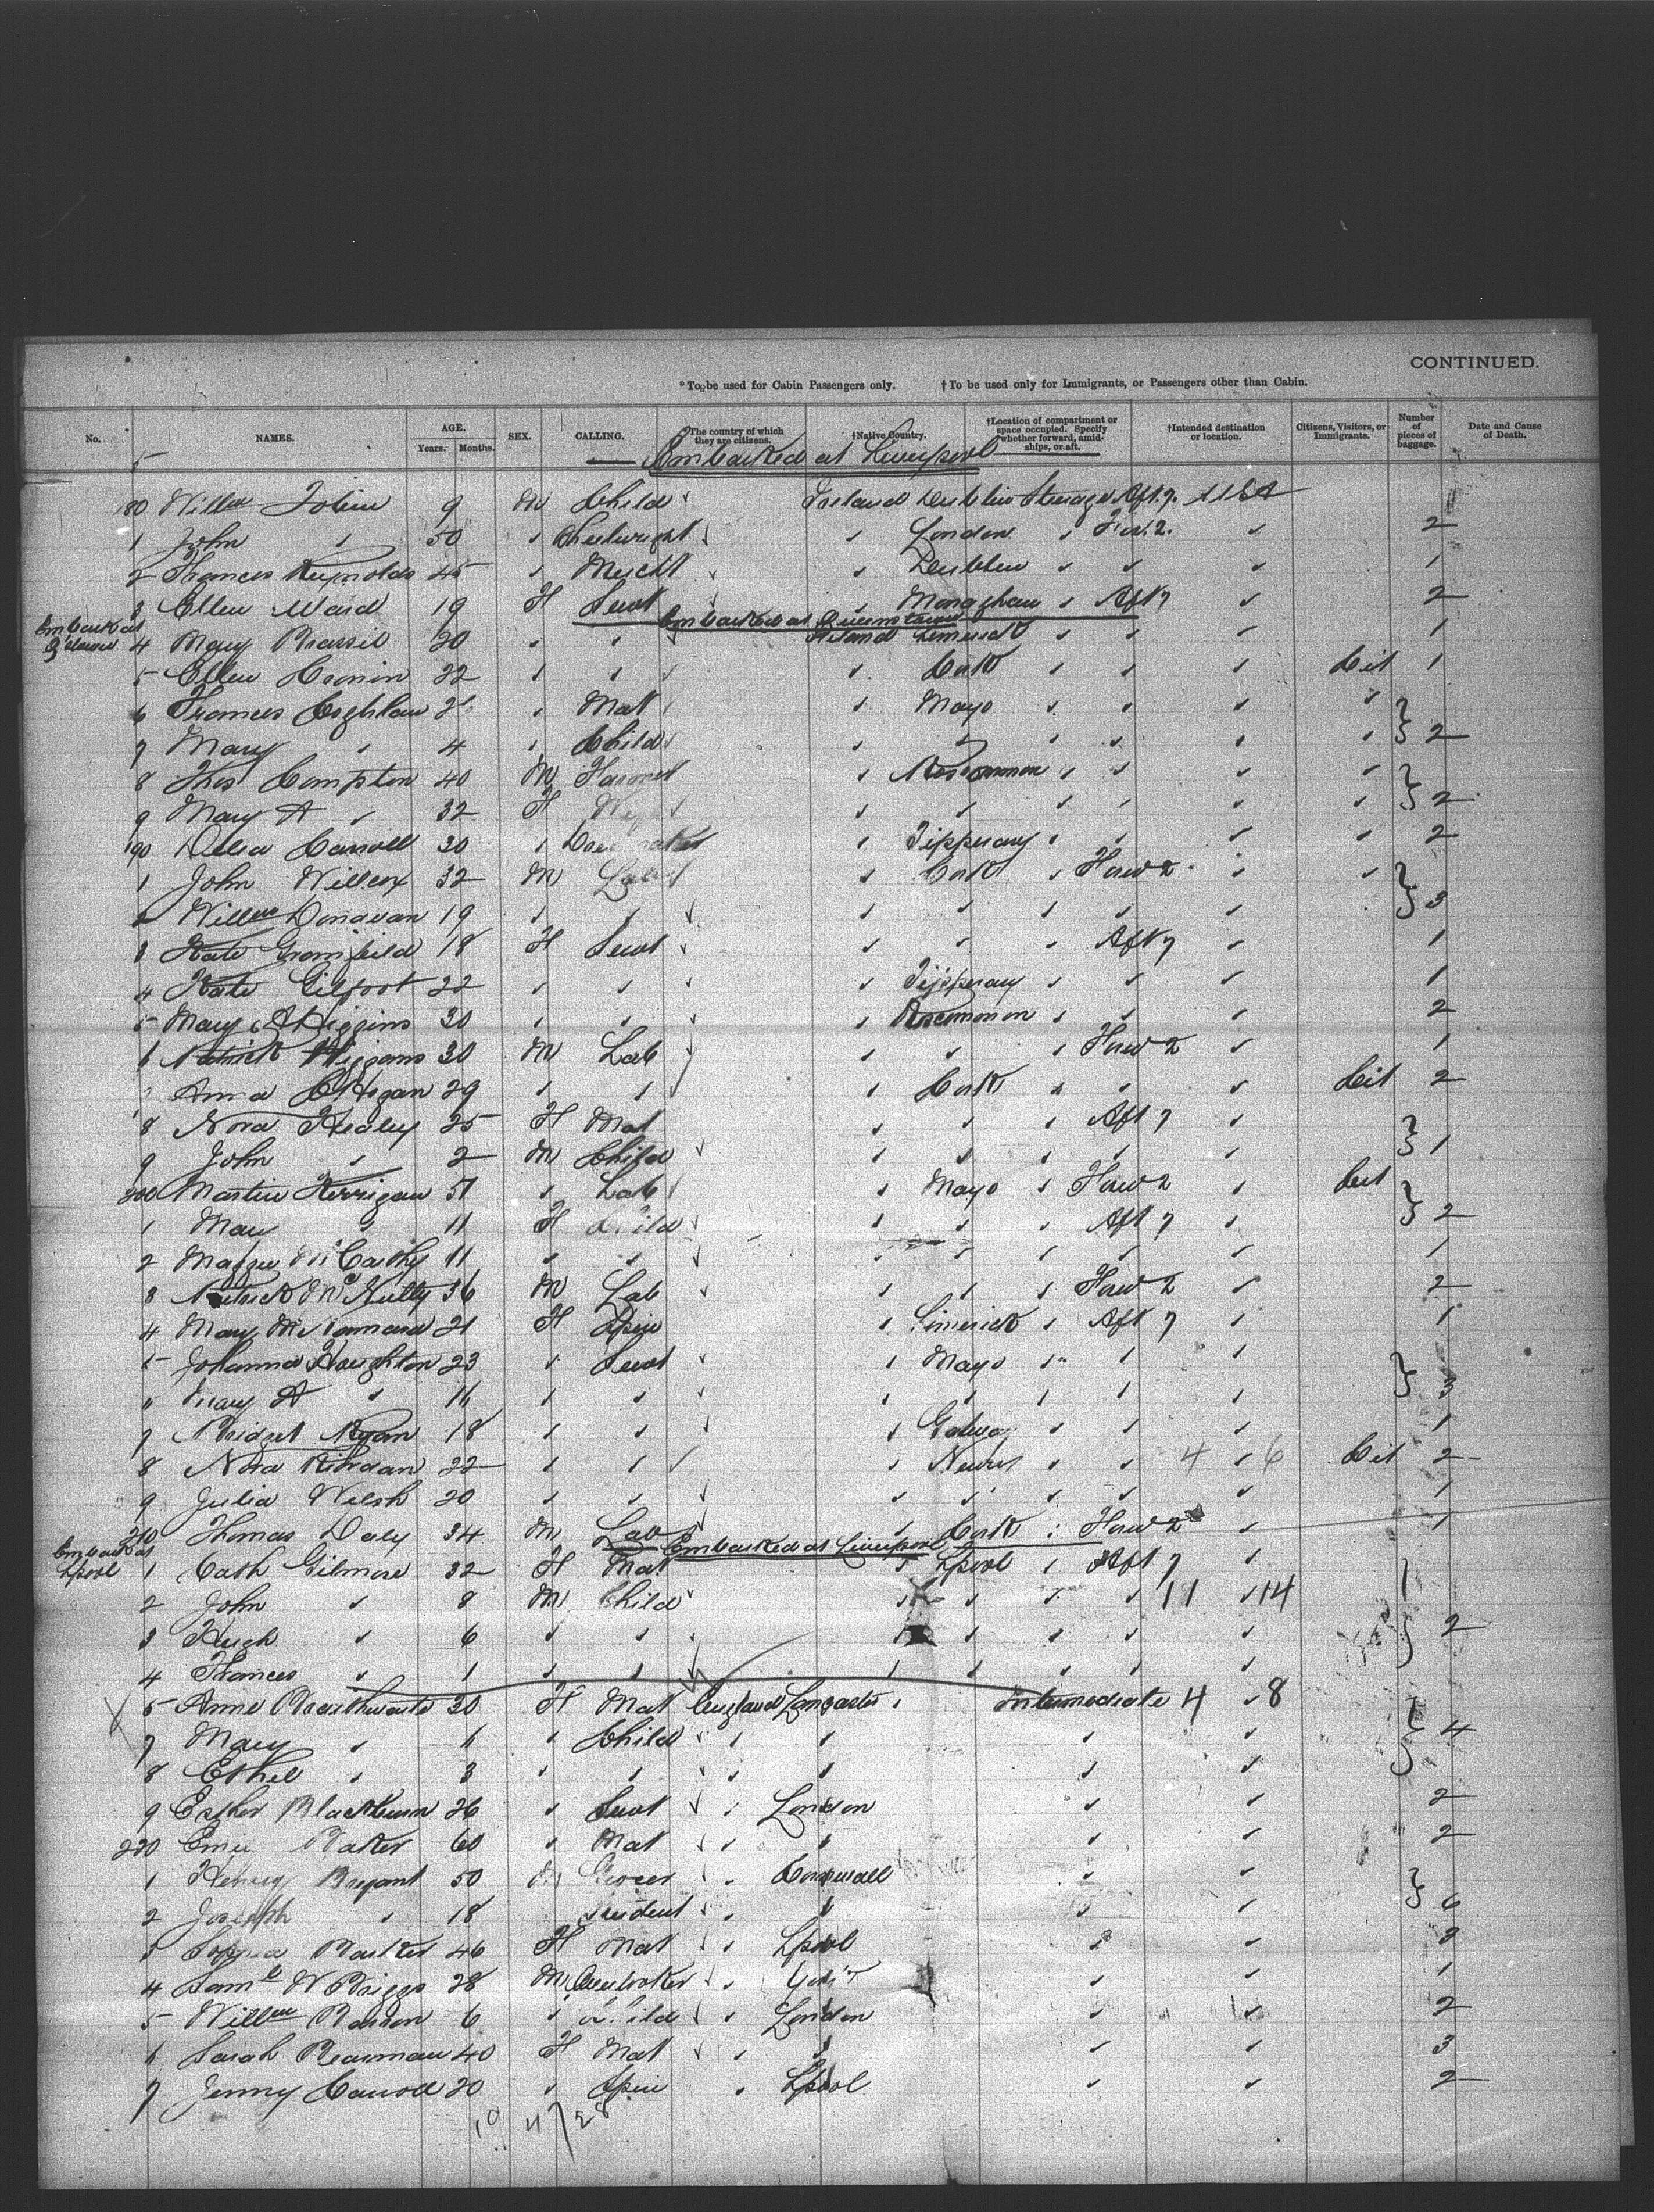 CONTINUED.
*To be used for Cabin Passengers only. †To be used only for Immigrants, or Passengers other than Cabin.
No. NAMES. AGE. Years. Months. SEX. CALLING. The country of which they are citizens. †Native Country. †Location of compartment or space occupied. Specify whether forward, amidships, or aft. †Intended destination or location. Citizens, Visitors, or Immigrants. Number of pieces of baggage. Date and Cause of Death.
Embarked at Liverpool
80 Willm Tobin 9 M Child Ireland Dublin Steerage Aft 7. USA
1 John " 50 " " London " For. 2. " 2
2 Frances Reynolds 45 " Mercht " Dublin " " " 1
3 Ellen Ward 19 F Servt " Monaghan " Aft 7 " 2
Embarked at Queenstown
Embark at Q'town 4 Mary Brassil 20 " " Ireland Limerick " " " 1
5 Ellen Cronin 22 " " " Cork " " " Cit 1
6 Frances Coghlan " Mat " Mayo " " " "
7 Mary " 4 " Child " " " " " " } 2
8 Thos Compton 40 M Farmer " Roscommon " " " "
9 Mary A " 32 F Wife " " " " " " } 2
190 Delia Carroll 30 " " Tipperary " " " " 2
1 John Willcox 32 M Lab " Cork " Forw 2 " "
2 Willm Donavan 19 " " " " " " " } 3
3 Kate 18 F Servt " " " Aft 7 " 1
4 Kate Gilfoot 22 " " " Tipperary " " " 1
5 Mary A Higgins 30 " " " Roscommon " " " 2
6 Patrick Higgins 30 M Lab " " " Forw 2 " 1
Anna O'Hogan 29 " " " Cork " " " Cit 2
8 Nora Healey 25 F Mat " " " Aft 7 "
9 John " 2 M Child " " " " " } 1
200 Martin Kerrigan 51 " Lab " Mayo " Forw 2 " Cit
1 Mary " 11 F Child " " " Aft 7 " } 2
2 Maggie McCarthy 11 " " " " " " " 1
3 Patrick McNulty 36 M Lab " " " Forw 2 " 2
4 Mary McNamara 21 F Spin " Limerick " Aft 7 " 1
5 Johanna Naughton 23 " Servt " Mayo " " "
" Mary A " 16 " " " " " " " } 3
7 Bridget Ryan 18 " " " Galway " " " 1
8 Nora Riordan 22 " " " " " 4 " 6 Cit 2
9 Julia Welsh 20 " " " " " " " 1
210 Thomas Daly 34 M Lab " Cork " Forw 2 " 1
Embarked at Liverpool
Embark at Lpool 1 Cath Gilmore 32 F Mat " Lpool " Aft 7 "
2 John " 8 M Child " " " " 11 " 14
3 Hugh " 6 " " " " " " " } 2
4 Frances " 1 " " " " " " "
5 Anne Braithwaite 30 F Mat England Lancaster " Intermediate 4 " 8
7 Mary " " Child " " " " } 4
8 Ethel " 3 " " " " " "
9 Esther Blackburn 26 " Servt " London " " 2
220 Baker 60 " Mat " " " " 2
1 Henry Bryant 50 M Grocer " Cornwall " "
2 Joseph " 18 Student " " " " } 6
3 Barker 46 F Mat " Lpool " " 3
4 Saml W Briggs 28 M Overlooker " York " " 1
5 Willm 6 " Child " London " " 2
6 Sarah 40 F Mat " " " " 3
7 Jenny Carroll 20 " Spin " Lpool " " 2
10 4 / 28